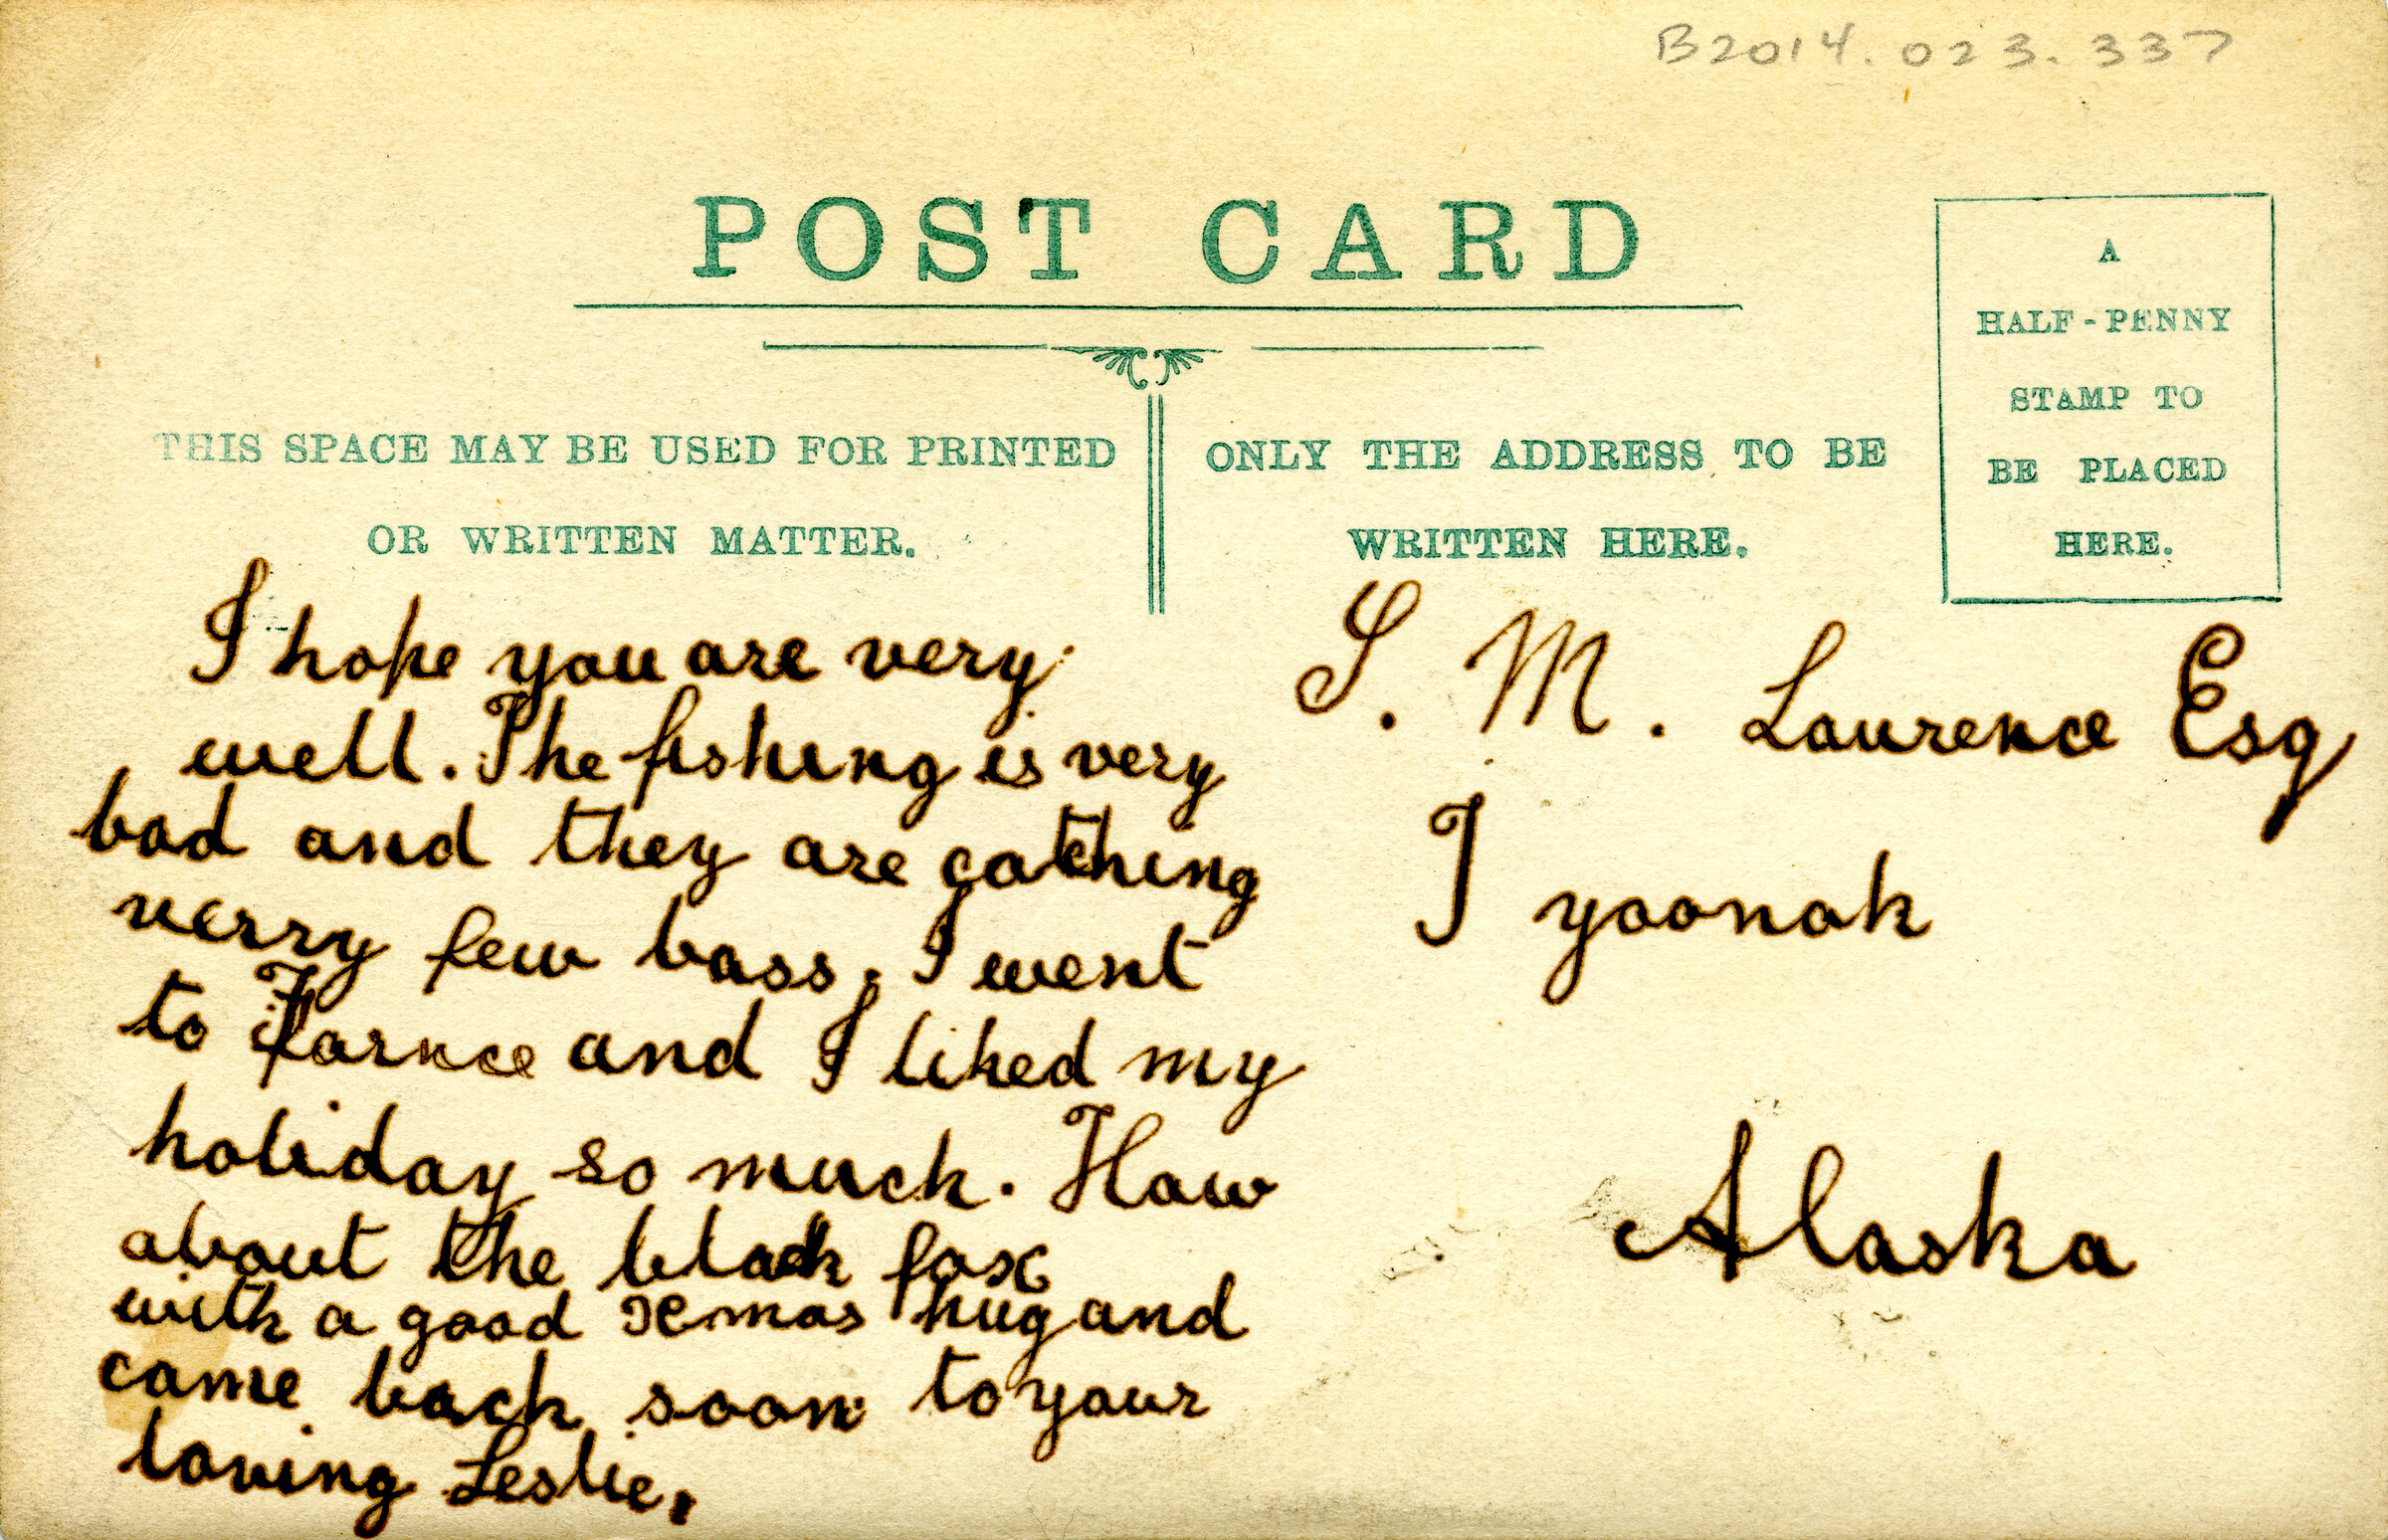 B2014.023.337
POST CARD
A
HALF-PENNY
STAMP TO
BE PLACED
HERE.
THIS SPACE MAY BE USED FOR PRINTED
OR WRITTEN MATTER.
ONLY THE ADDRESS TO BE
WRITTEN HERE.
I hope you are very
well. The fishing is very
bad and they are catching
verry few bass. I went
to Farnce and I liked my
holiday so much. How
about the black fox
with a good Xmas hug and
come back soon to your
loving Leslie.
S. M. Laurence Esq
Tyoonok
Alaska